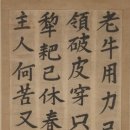 老牛用力
領破皮穿只
犂耙已休春
主人何苦又